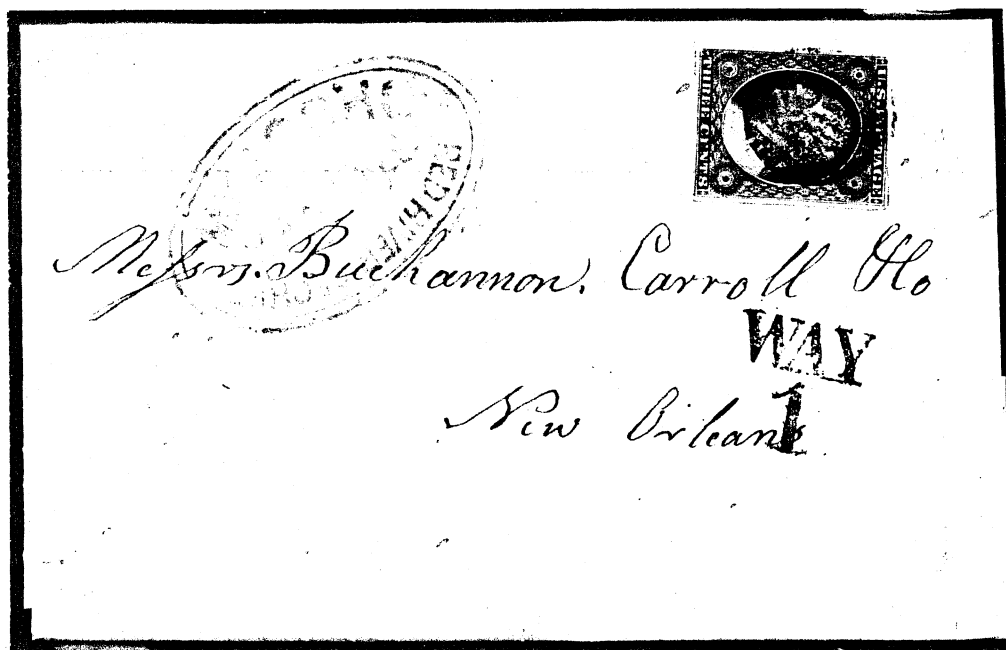 RED RIVER
U.S. POSTAGE
THREE CENTS
Messrs. Buchannon. Carroll & Co
WAY
1
New Orleans